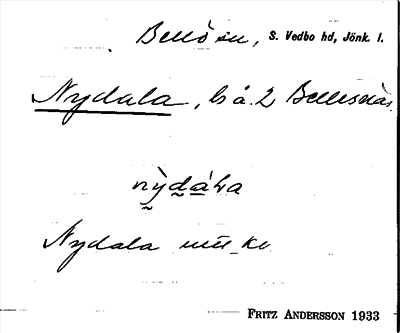 Bellö sn, S. Vedbo hd, Jönk. l.
Nydala, ls å. 2 Bellösnäs
nỳdála
Nydala
FRITZ ANDERSSON 1933